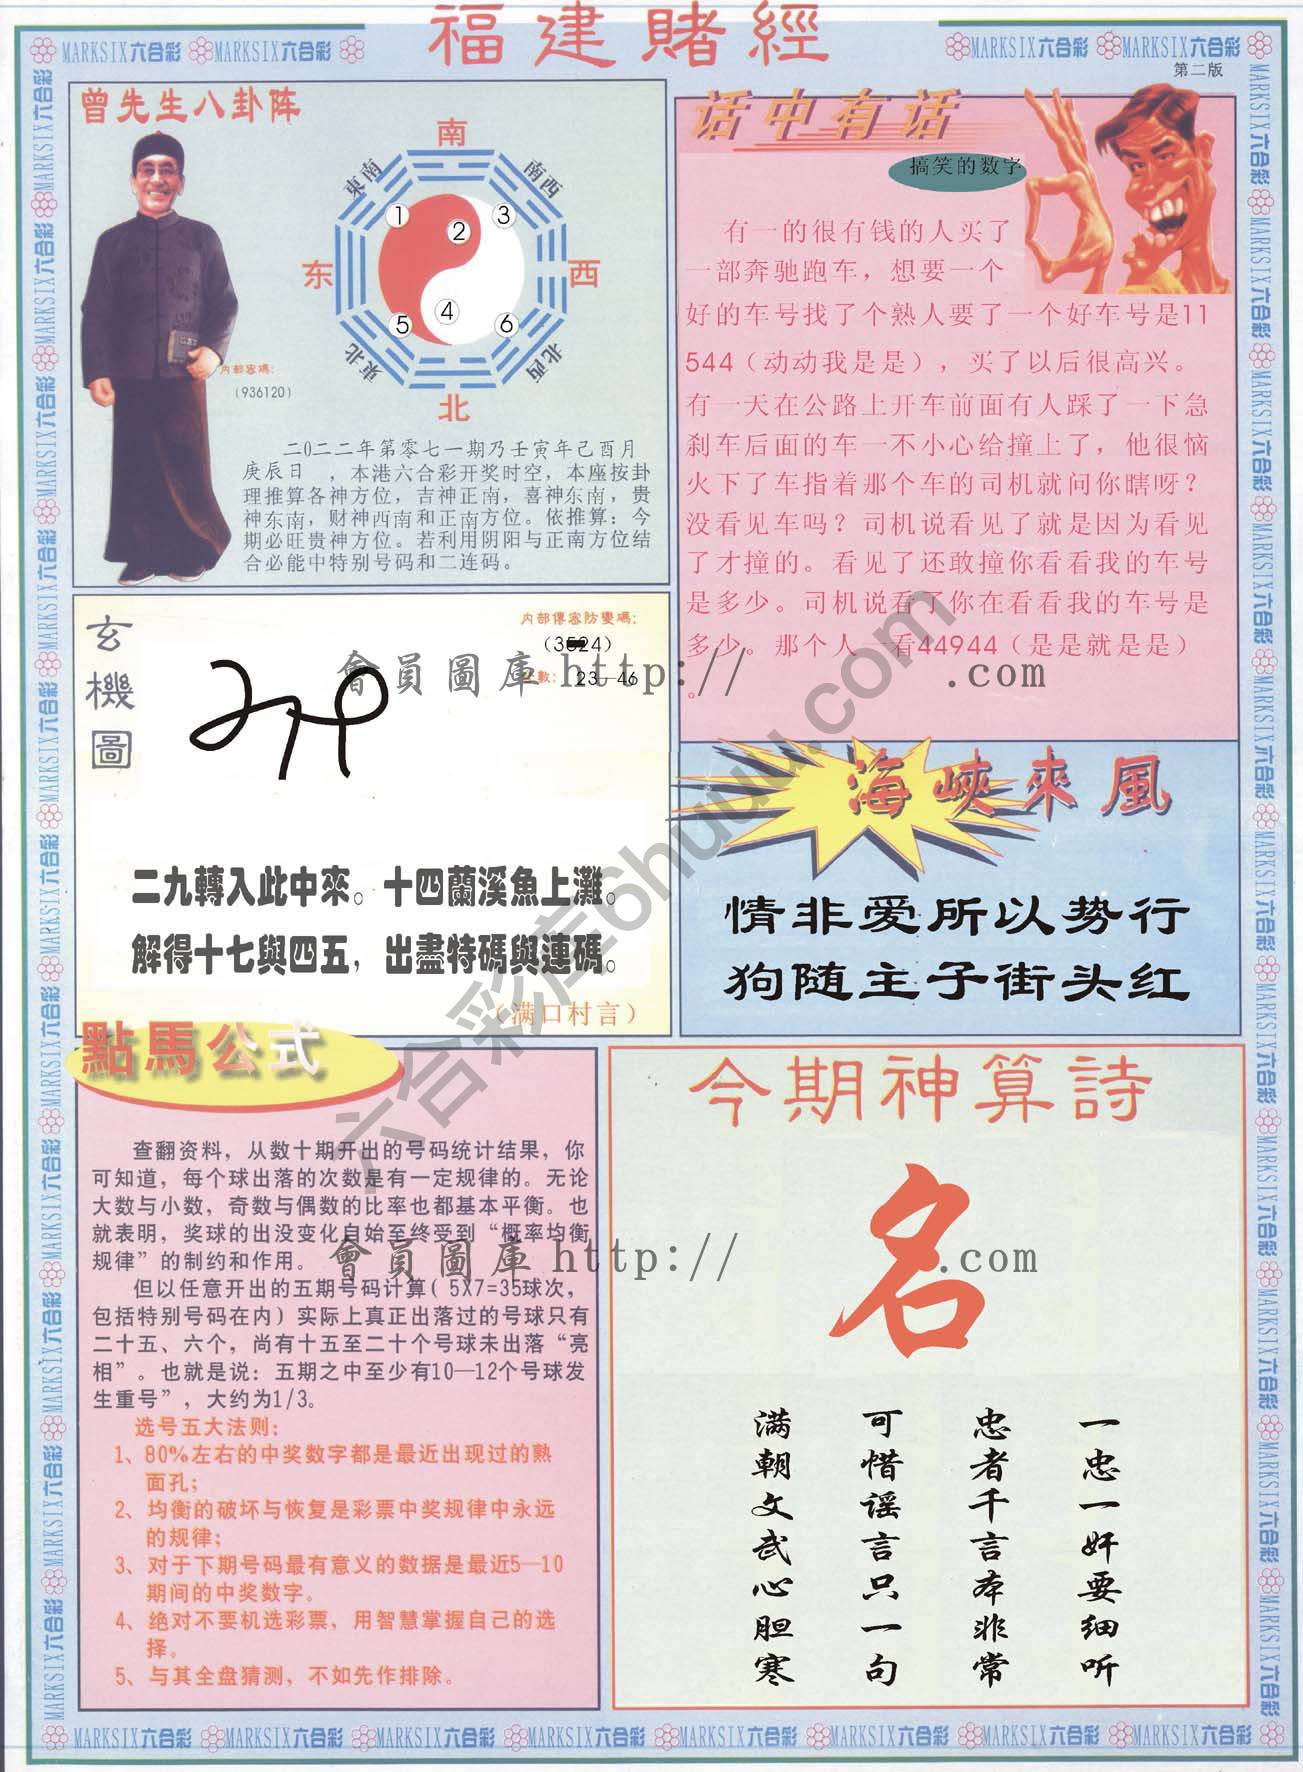 福建賭經
MARKSIX六合彩 MARKSIX六合彩
MARKSIX六合彩 MARKSIX六合彩
第二版
曾先生八卦阵
南
東南
南西
1
2
3
东
西
4
5
6
東北
北西
北
内部密碼:
(936120)
二0二二年第零七一期乃壬寅年己酉月
庚辰日 ,本港六合彩开奖时空,本座按卦
理推算各神方位,吉神正南,喜神东南,贵
神东南,财神西南和正南方位。依推算:今
期必旺贵神方位。若利用阴阳与正南方位结
合必能中特别号码和二连码。
话中有话
搞笑的数字
有一的很有钱的人买了
一部奔驰跑车,想要一个
好的车号找了个熟人要了一个好车号是11
544(动动我是是),买了以后很高兴。
有一天在公路上开车前面有人踩了一下急
刹车后面的车一不小心给撞上了,他很恼
火下了车指着那个车的司机就问你瞎呀?
没看见车吗?司机说看见了就是因为看见
了才撞的。看见了还敢撞你看看我的车号
是多少。司机说看了你在看看我的车号是
多少。那个人一看44944(是是就是是)
。
玄機圖
内部傳密防變碼:
(3524)
數: 23—46
會員圖庫 http:// .com
二九轉入此中來。十四蘭溪魚上灘。
解得十七與四五,出盡特碼與連碼。
(满口村言)
海峽來風
情非爱所以势行
狗随主子街头红
六合彩库6huuu.com
點馬公式
查翻资料,从数十期开出的号码统计结果,你
可知道,每个球出落的次数是有一定规律的。无论
大数与小数,奇数与偶数的比率也都基本平衡。也
就表明,奖球的出没变化自始至终受到“概率均衡
规律”的制约和作用。
但以任意开出的五期号码计算( 5X7=35球次,
包括特别号码在内)实际上真正出落过的号球只有
二十五、六个,尚有十五至二十个号球未出落“亮
相”。也就是说:五期之中至少有10—12个号球发
生重号”,大约为1/3。
选号五大法则:
1、80%左右的中奖数字都是最近出现过的熟
面孔;
2、均衡的破坏与恢复是彩票中奖规律中永远
的规律;
3、对于下期号码最有意义的数据是最近5—10
期间的中奖数字。
4、绝对不要机选彩票,用智慧掌握自己的选
择。
5、与其全盘猜测,不如先作排除。
會員圖庫 http:// .com
今期神算詩
名
一忠一奸要细听
忠者千言本非常
可惜谣言只一句
满朝文武心胆寒
MARKSIX六合彩 MARKSIX六合彩 MARKSIX六合彩 MARKSIX六合彩 MARKSIX六合彩 MARKSIX六合彩 MARKSIX六合彩 MARKSIX六合彩